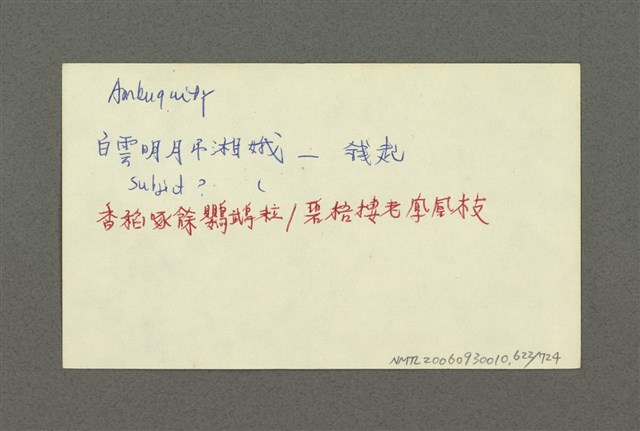 Ambuguity
白雲明月弔湘娥 — 錢起
Subject? (
香稻啄餘鸚鵡粒/碧梧棲老鳳凰枝
NMTL20060930010.623/724